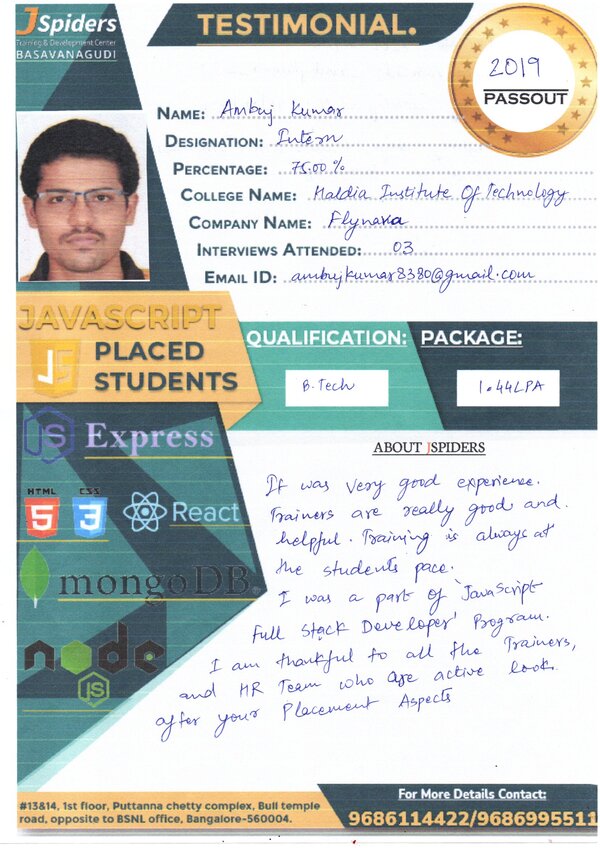 JSpiders
Training & Development Center
BASAVANAGUDI
TESTIMONIAL.
2019
PASSOUT
NAME: Ambuj Kumar
DESIGNATION: Intern
PERCENTAGE: 75.00 %
COLLEGE NAME: Haldia Institute Of Technology
COMPANY NAME: Flynava
INTERVIEWS ATTENDED: 03
EMAIL ID: ambujkumar8380@gmail.com
JAVASCRIPT
JS PLACED
STUDENTS
QUALIFICATION: PACKAGE:
B.Tech 1.44LPA
JS Express
HTML CSS
5 3 React
mongoDB
node
JS
ABOUT JSPIDERS
It was very good experience.
Trainers are really good and
helpful. Training is always at
the students pace.
I was a part of 'JavaScript
Full Stack Developer' Program.
I am thankful to all the Trainers,
and HR Team who are active look
after your Placement Aspects
#13&14, 1st floor, Puttanna chetty complex, Bull temple
road, opposite to BSNL office, Bangalore-560004.
For More Details Contact:
9686114422/9686995511